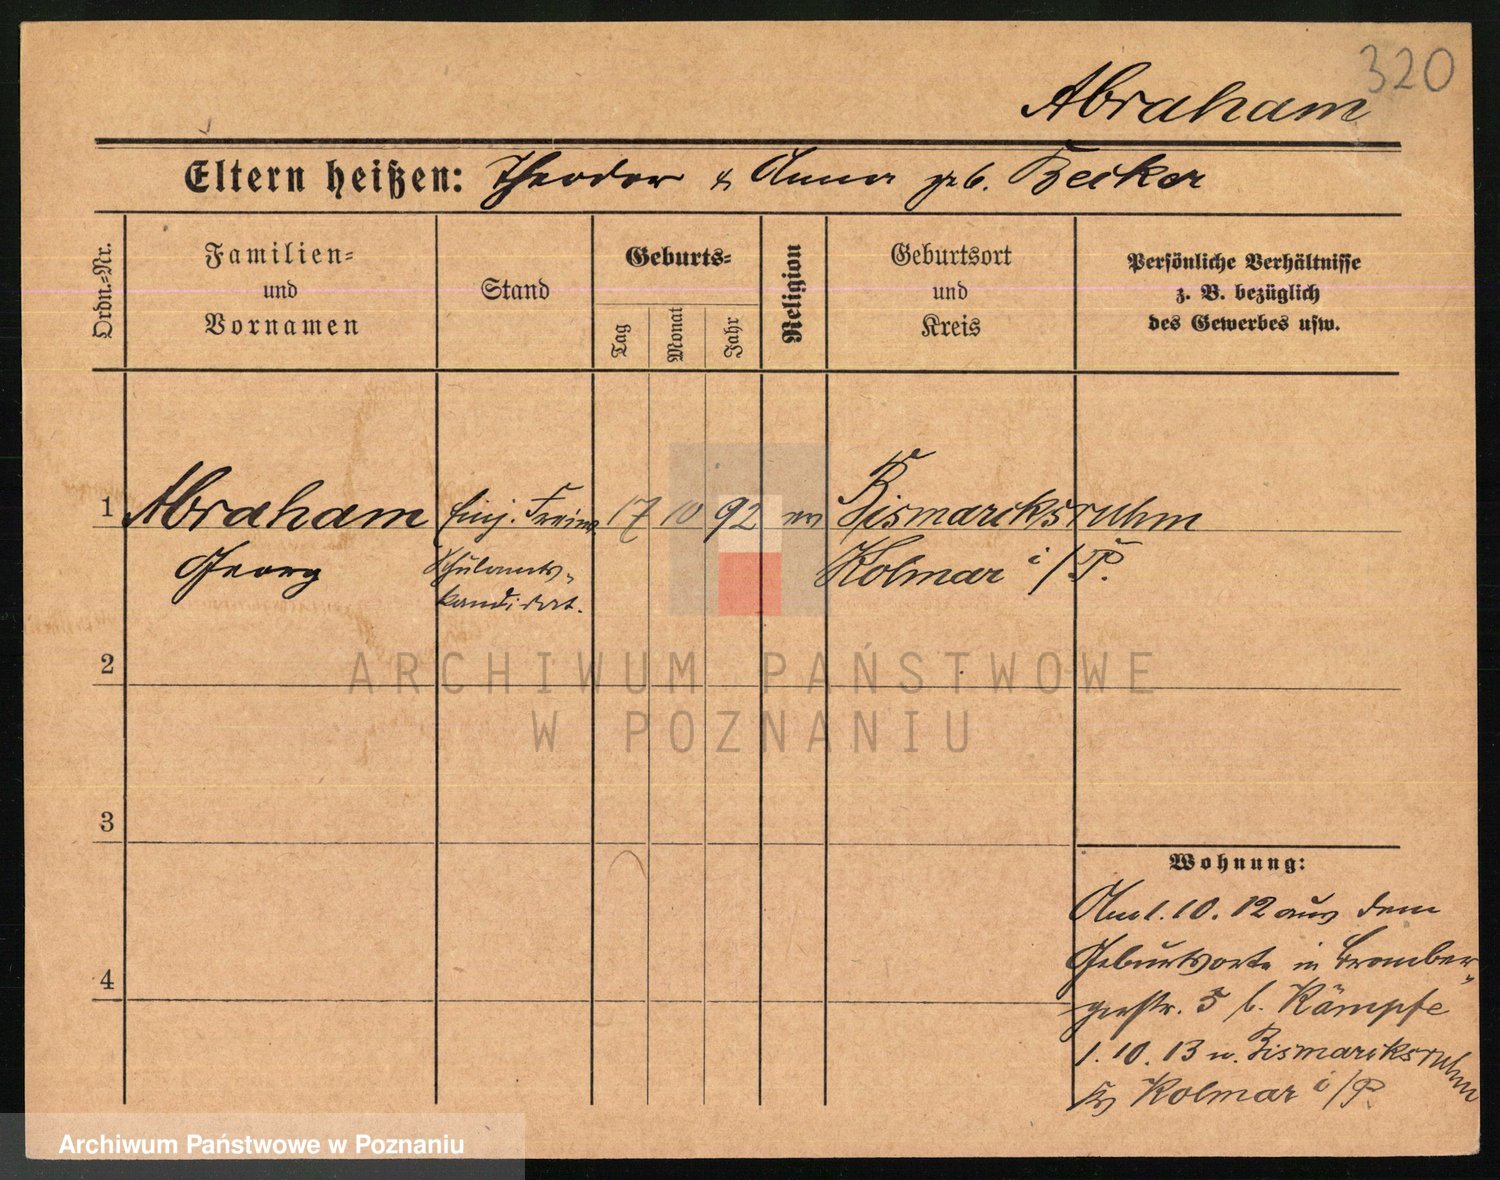 320
Abraham
Eltern heißen: Theodor & Anna geb. Becker
Ordn.-Nr.
Familien-
und
Vornamen
Stand
Geburts-
Tag
Monat
Jahr
Religion
Geburtsort
und
Kreis
Persönliche Verhältnisse
z. B. bezüglich
des Gewerbes usw.
1 Abraham Einj. Freiw. 17 10 92 ev Bismarcksruhm
Georg Schulamts- Kolmar i/P.
kandidat.
ARCHIWUM PAŃSTWOWE
W POZNANIU
2
3
4
Wohnung:
Am 1. 10. 12 aus dem
Geburtsorte in Bromber-
gerstr. 5 b. Kämpfe
1. 10. 13 n. Bismarcksruhm
Kr Kolmar i/P.
Archiwum Państwowe w Poznaniu